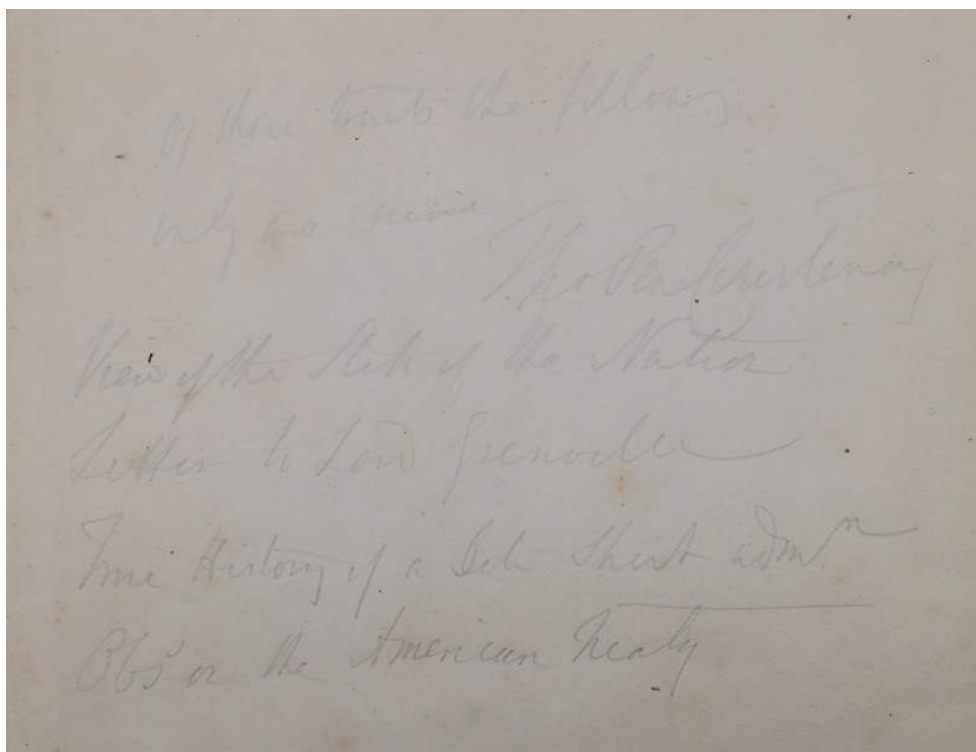 of these tracts the following
only are mine
Tho Per Courtenay
View of the State of the Nation
Letter to Lord Grenville
True History of a late Short admn
Obs on the American Treaty